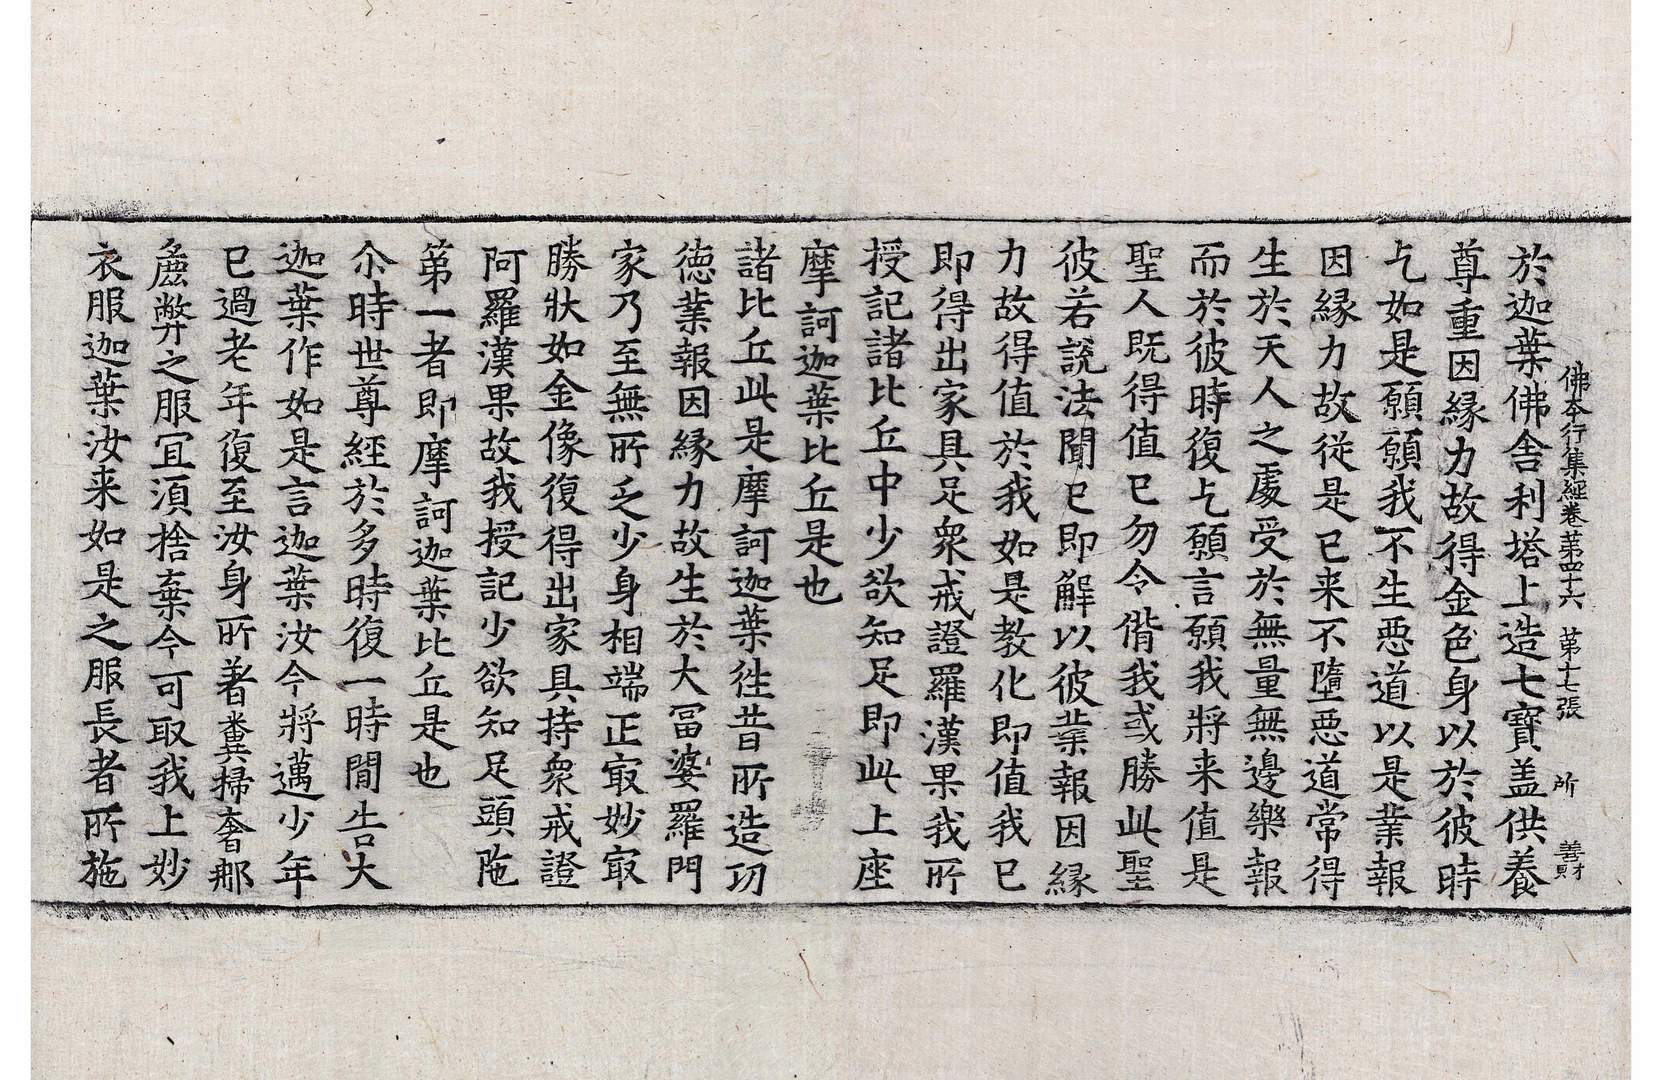 佛本行集經卷苐四十六 苐十七張 所 善財
於迦葉佛舎利塔上造七寶盖供養
尊重因縁力故得金色身以於彼時
乞如是願願我不生惡道以是業報
因縁力故從是已来不墮惡道常得
生於天人之處受於無量無邊樂報
而於彼時復乞願言願我將来值是
聖人既得值已勿令偝我或勝此聖
彼若說法聞已即解以彼業報因縁
力故得值於我如是教化即值我已
即得出家具足衆戒證羅漢果我所
授記諸比丘中少欲知足即此上座
摩訶迦葉比丘是也
諸比丘此是摩訶迦葉徃昔所造功
德業報因縁力故生於大冨婆羅門
家乃至無所乏少身相端正㝡妙㝡
勝狀如金像復得出家具持衆戒證
阿羅漢果故我授記少欲知足頭陁
苐一者即摩訶迦葉比丘是也
尒時世尊經於多時復一時間告大
迦葉作如是言迦葉汝今將邁少年
已過老年復至汝身所著糞掃奢那
麁弊之服冝湏捨棄今可取我上妙
衣服迦葉汝来如是之服長者所施